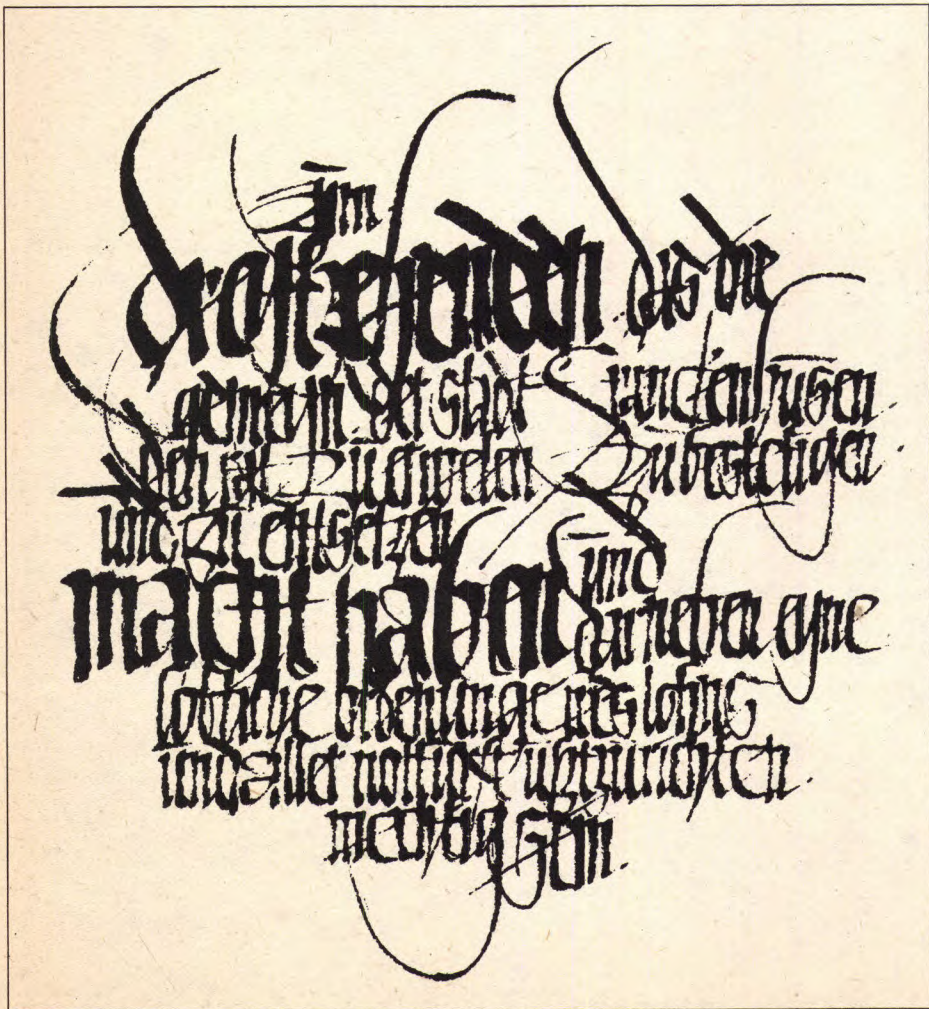 Zum
dreitzehenden das die
gemeyn der stadt Franckenhusen
den rat zu erwelen zu bestetigen.
und zu entsetzen
macht haben und
darneben eyne
lobliche ordenunge ires lohns
und aller nottorft uftzurichten.
mechtig sein.